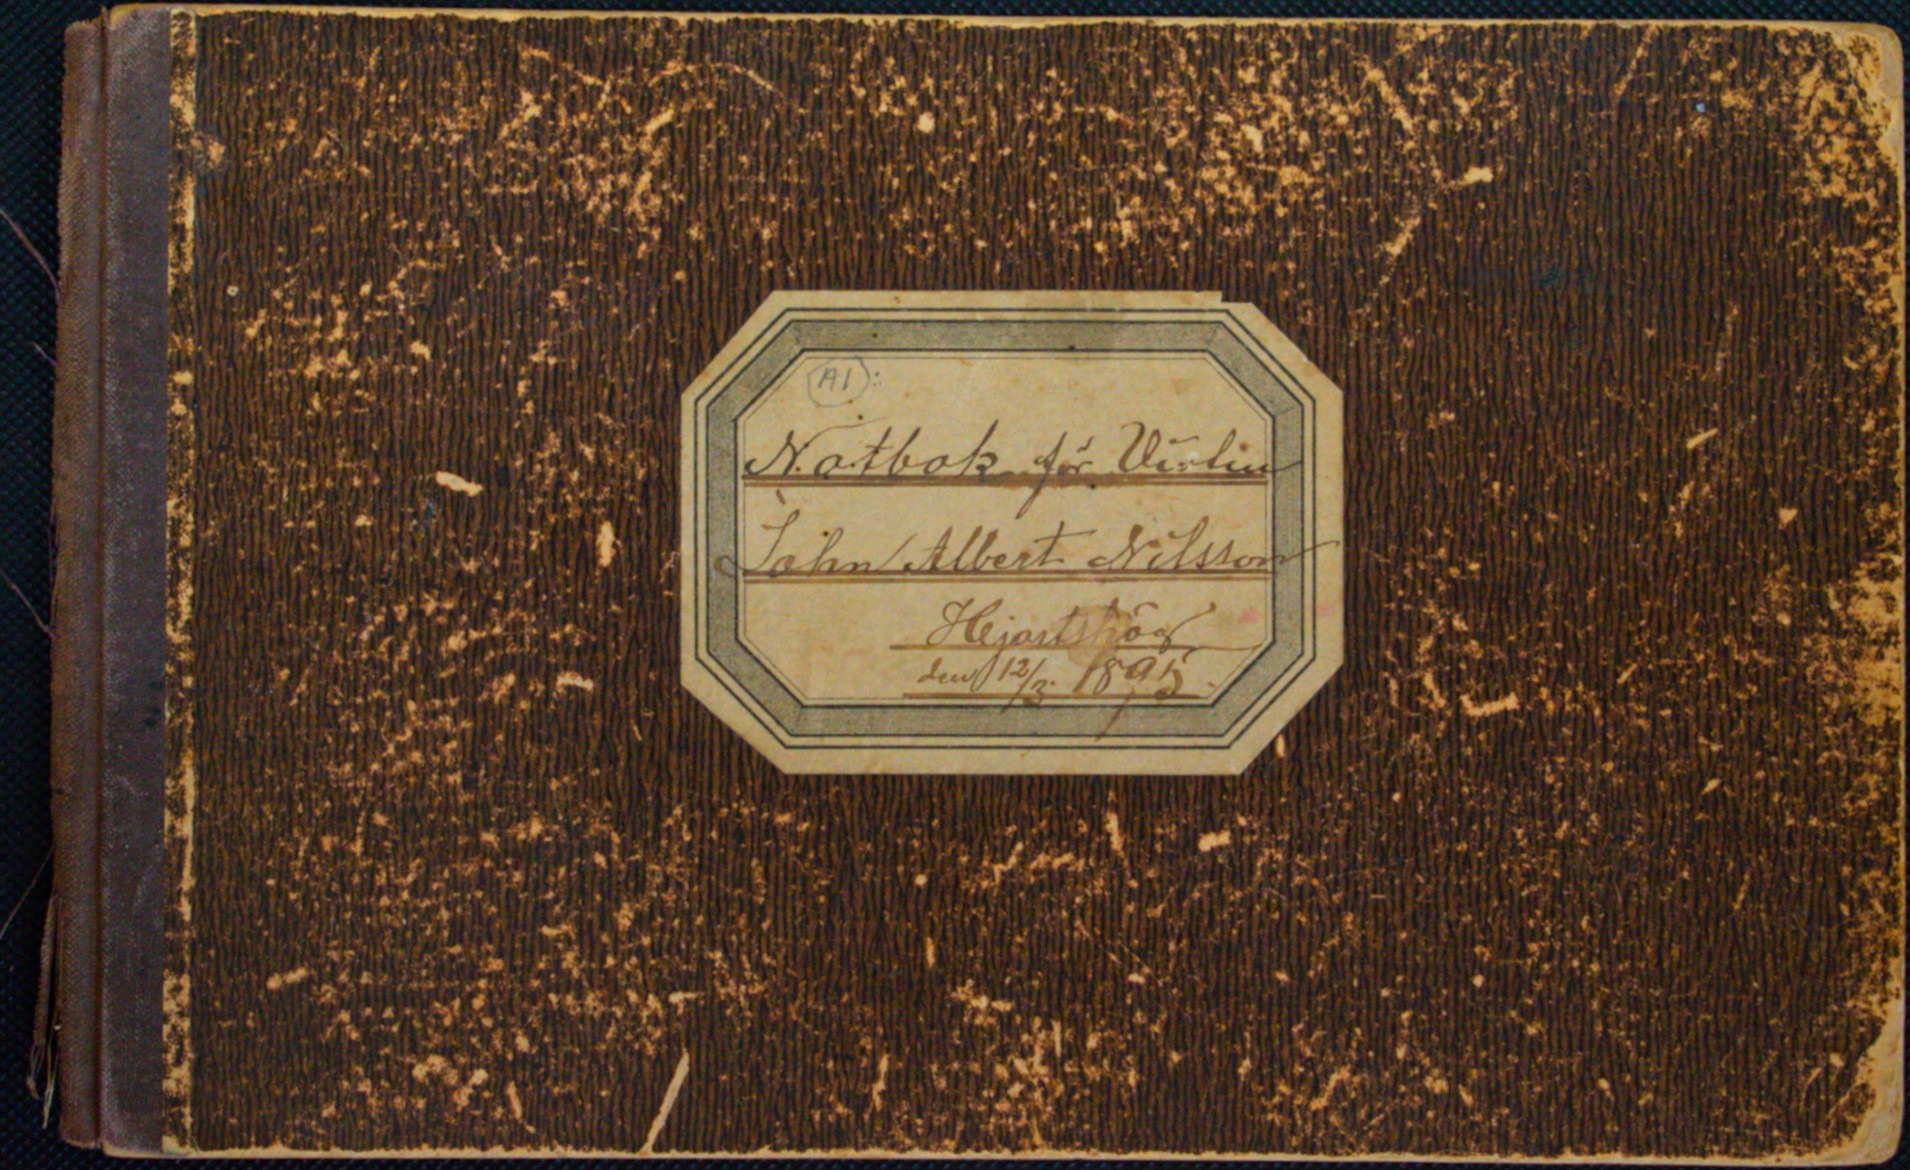 A1:
Notbok för Violin
John Albert Nilsson
Hejartshög
den 12/3. 1895.